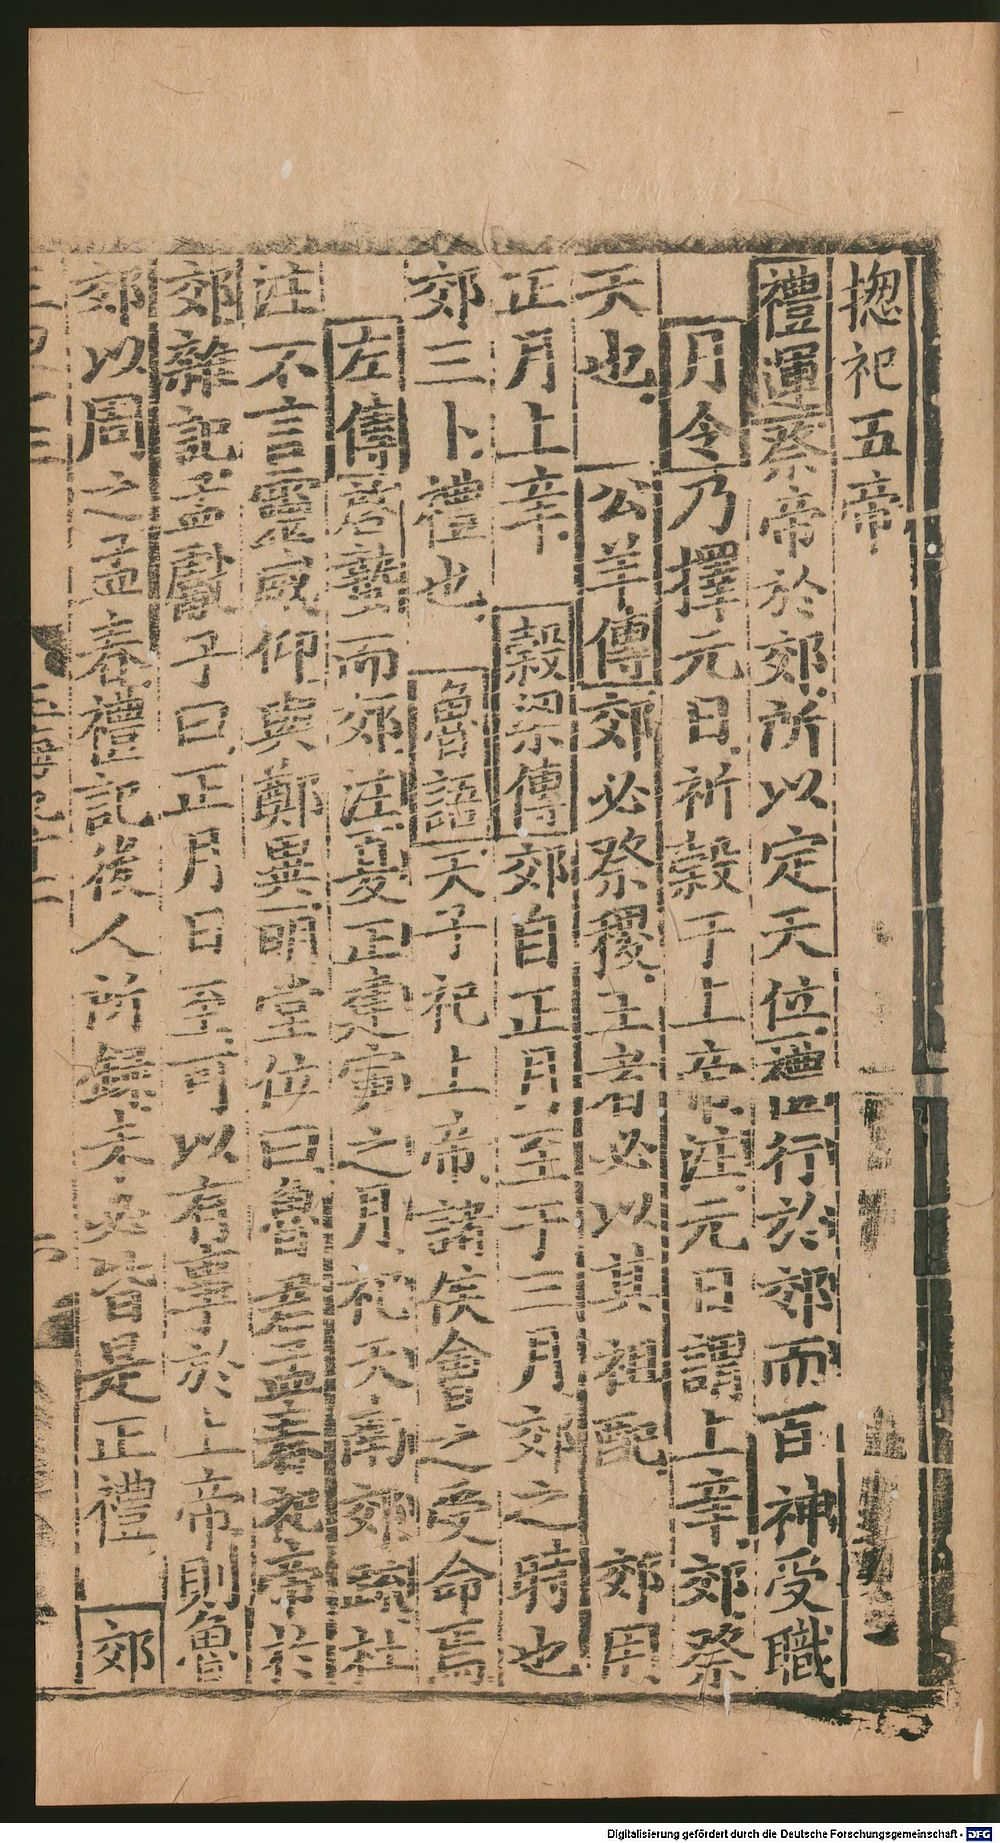 揔祀五帝
禮運祭帝於郊所以定天位禮行於郊而百神受職
月令乃擇元日祈穀于上帝注元日謂上辛郊祭
天也 公羊傳郊必祭稷王者必以其祖配 郊用
正月上辛 穀梁傳郊自正月至于三月郊之時也
郊三卜禮也 魯語天子祀上帝諸侯會之受命焉
左傳啓蟄而郊注夏正建寅之月祀天南郊疏杜
注不言靈威仰與鄭異明堂位曰魯君孟春祀帝於
郊雜記孟獻子曰正月日至可以有事於上帝則魯
郊以周之孟春禮記後人所錄未必皆是正禮 郊
Digitalisierung gefördert durch die Deutsche Forschungsgemeinschaft - DFG